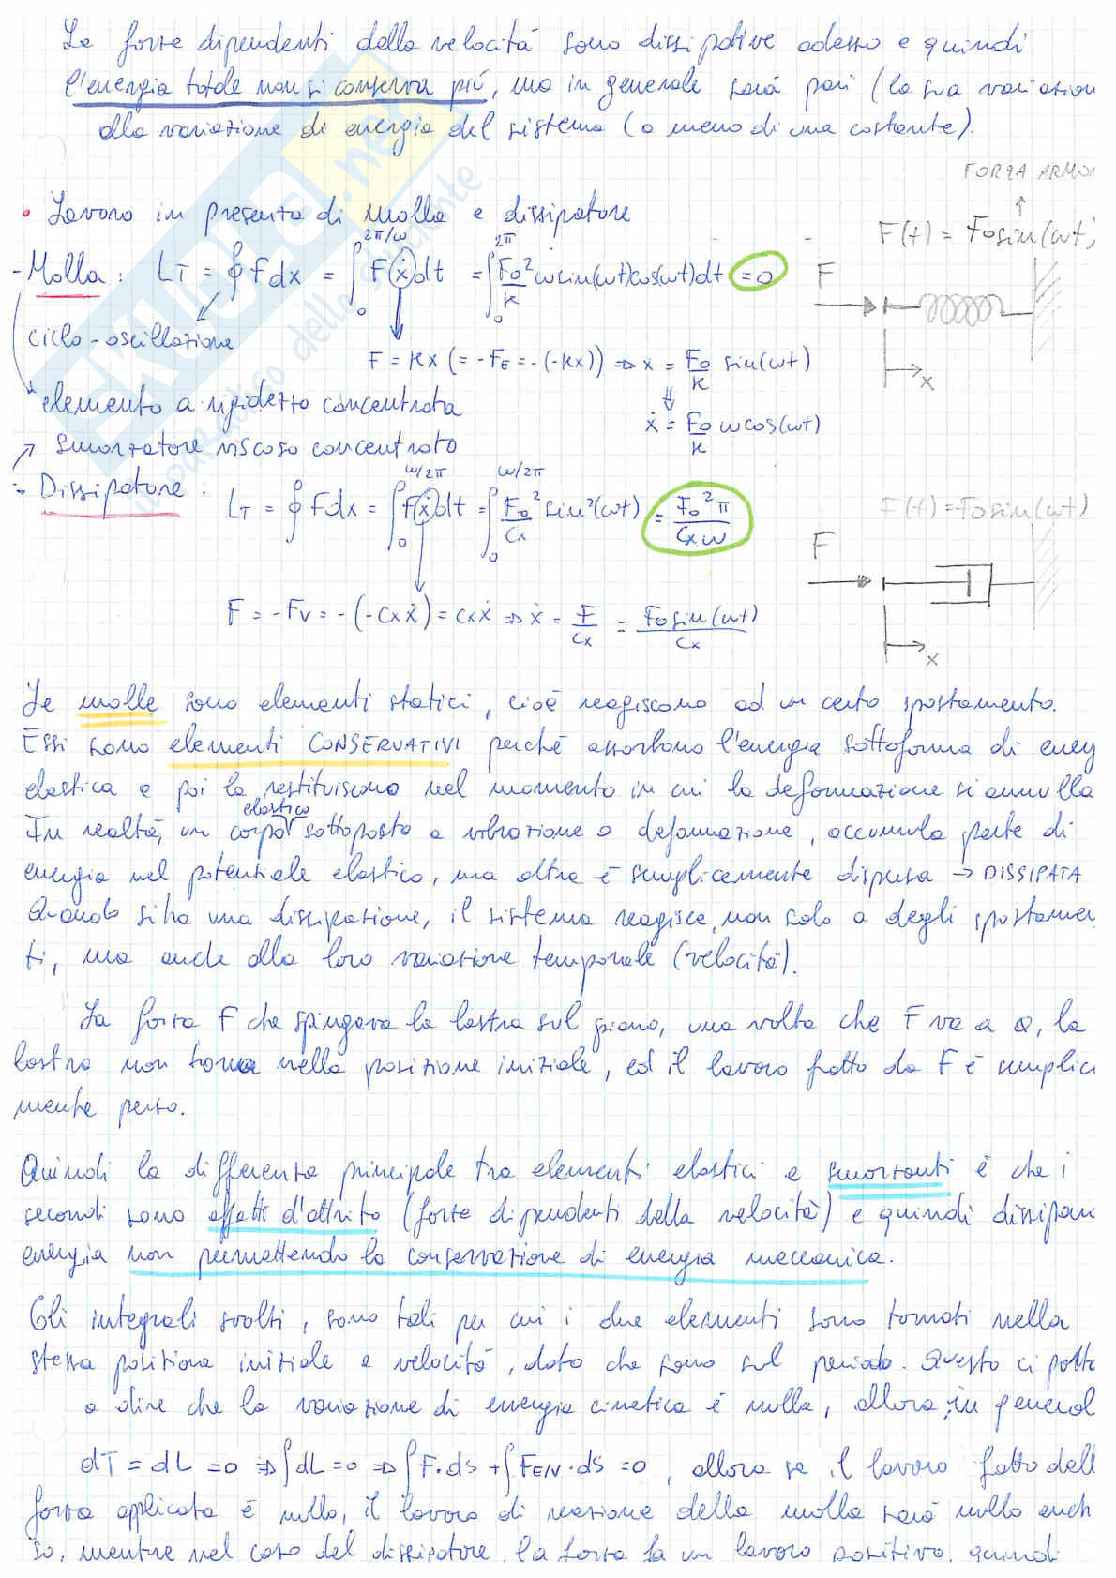 Le forze dipendenti dalla velocitá sono dissipative adesso e quindi
l'energia totale non si conserva piú, ma in generale sará pari (la sua variazion
alla variazione di energia del sistema (a meno di una costante).
FORZA ARMO
• Lavoro in presenza di molla e dissipatore
F(t) = F₀sin(ωt)
- Molla: L_T = ∮ F dx = ∫₀^{2π/ω} F(ẋ)dt = ∫₀^{2π} F₀²/K ω sin(ωt)cos(ωt)dt = 0
F
ciclo-oscillazione
F = Kx (= -F_E = -(-Kx)) ⇒ x = F₀/K sin(ωt)
x
elemento a rigidezza concentrata
ẋ = F₀/K ω cos(ωt)
↗ smorzatore viscoso concentrato
- Dissipatore: L_T = ∮ F dx = ∫₀^{ω/2π} F(ẋ)dt = ∫₀^{ω/2π} F₀²/Cx sin²(ωt) = F₀²π/Cxω
F(t) = F₀sin(ωt)
F
F = -Fv = -(-Cxẋ) = Cxẋ ⇒ ẋ = F/Cx = F₀sin(ωt)/Cx
x
Le molle sono elementi statici, cioé reagiscono ad un certo spostamento.
Essi sono elementi CONSERVATIVI perché assorbono l'energia sottoforma di energ
elastica e poi la restituiscono nel momento in cui la deformazione si annulla
In realtá, un corpo elastico sottoposto a vibrazione o deformazione, accumula parte di
energia nel potenziale elastico, ma altra é semplicemente dispersa → DISSIPATA
Quando si ha una dissipazione, il sistema reagisce, non solo a degli spostamen
ti, ma anche alla loro variazione temporale (velocitá).
La forza F che spingeva la lastra sul piano, una volta che F va a 0, la
lastra non torna nella posizione iniziale, ed il lavoro fatto da F é semplice
mente perso.
Quindi la differenza principale tra elementi elastici e smorzanti é che i
secondi sono effetti d'attrito (forze dipendenti della velocitá) e quindi dissipan
energia non permettendo la conservazione di energia meccanica.
Gli integrali svolti, sono tali per cui i due elementi sono tornati nella
stessa posizione iniziale e velocitá, dato che sono sul periodo. Questo ci porta
a dire che la variazione di energia cinetica é nulla, allora, in general
dT = dL = 0 ⇒ ∫dL = 0 ⇒ ∫F·ds + ∫F_EN·ds = 0, allora se il lavoro fatto dall
forza applicata é nullo, il lavoro di reazione della molla sará nullo anch
so, mentre nel caso del dissipatore, la forza fa un lavoro positivo, quindi